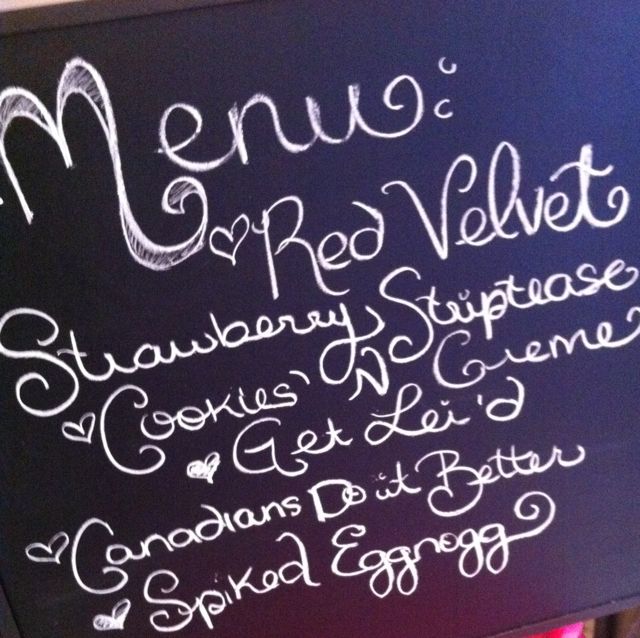 Menu:
Red Velvet
Strawberry Striptease
Cookies' N Creme
Get Lei'd
Canadians Do it Better
Spiked Eggnogg